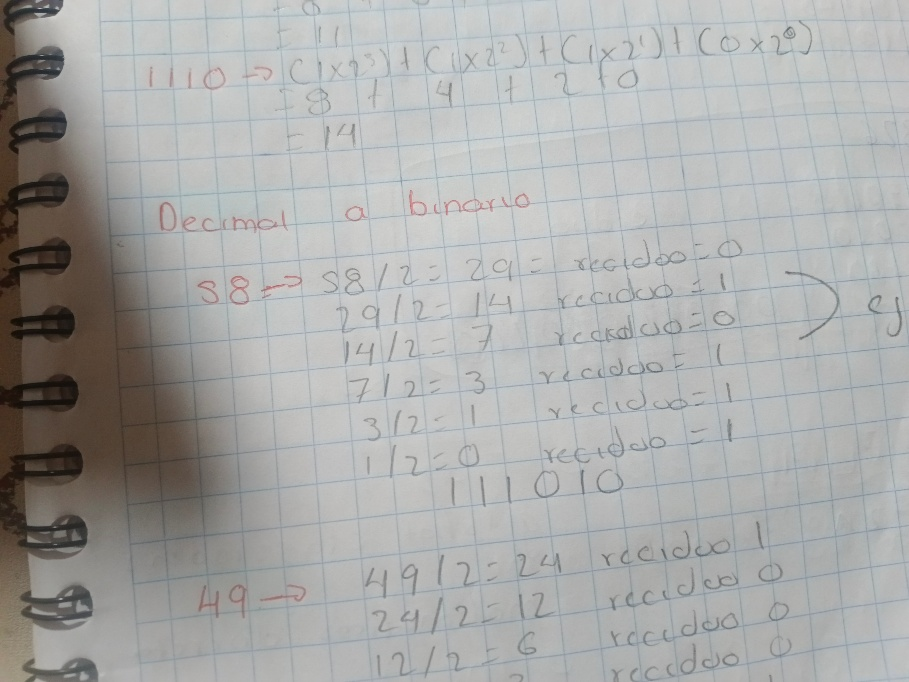 = 11
1110 → (1x2³) + (1x2²) + (1x2¹) + (0x2⁰)
= 8 + 4 + 2 + 0
= 14
Decimal a binario
58 → 58/2 = 29 = reciduo = 0
29/2 = 14 reciduo = 1
14/2 = 7 reciduo = 0
7/2 = 3 reciduo = 1
3/2 = 1 reciduo = 1
1/2 = 0 reciduo = 1
111010
49 → 49/2 = 24 reciduo 1
24/2 = 12 reciduo 0
12/2 = 6 reciduo 0
reciduo 0